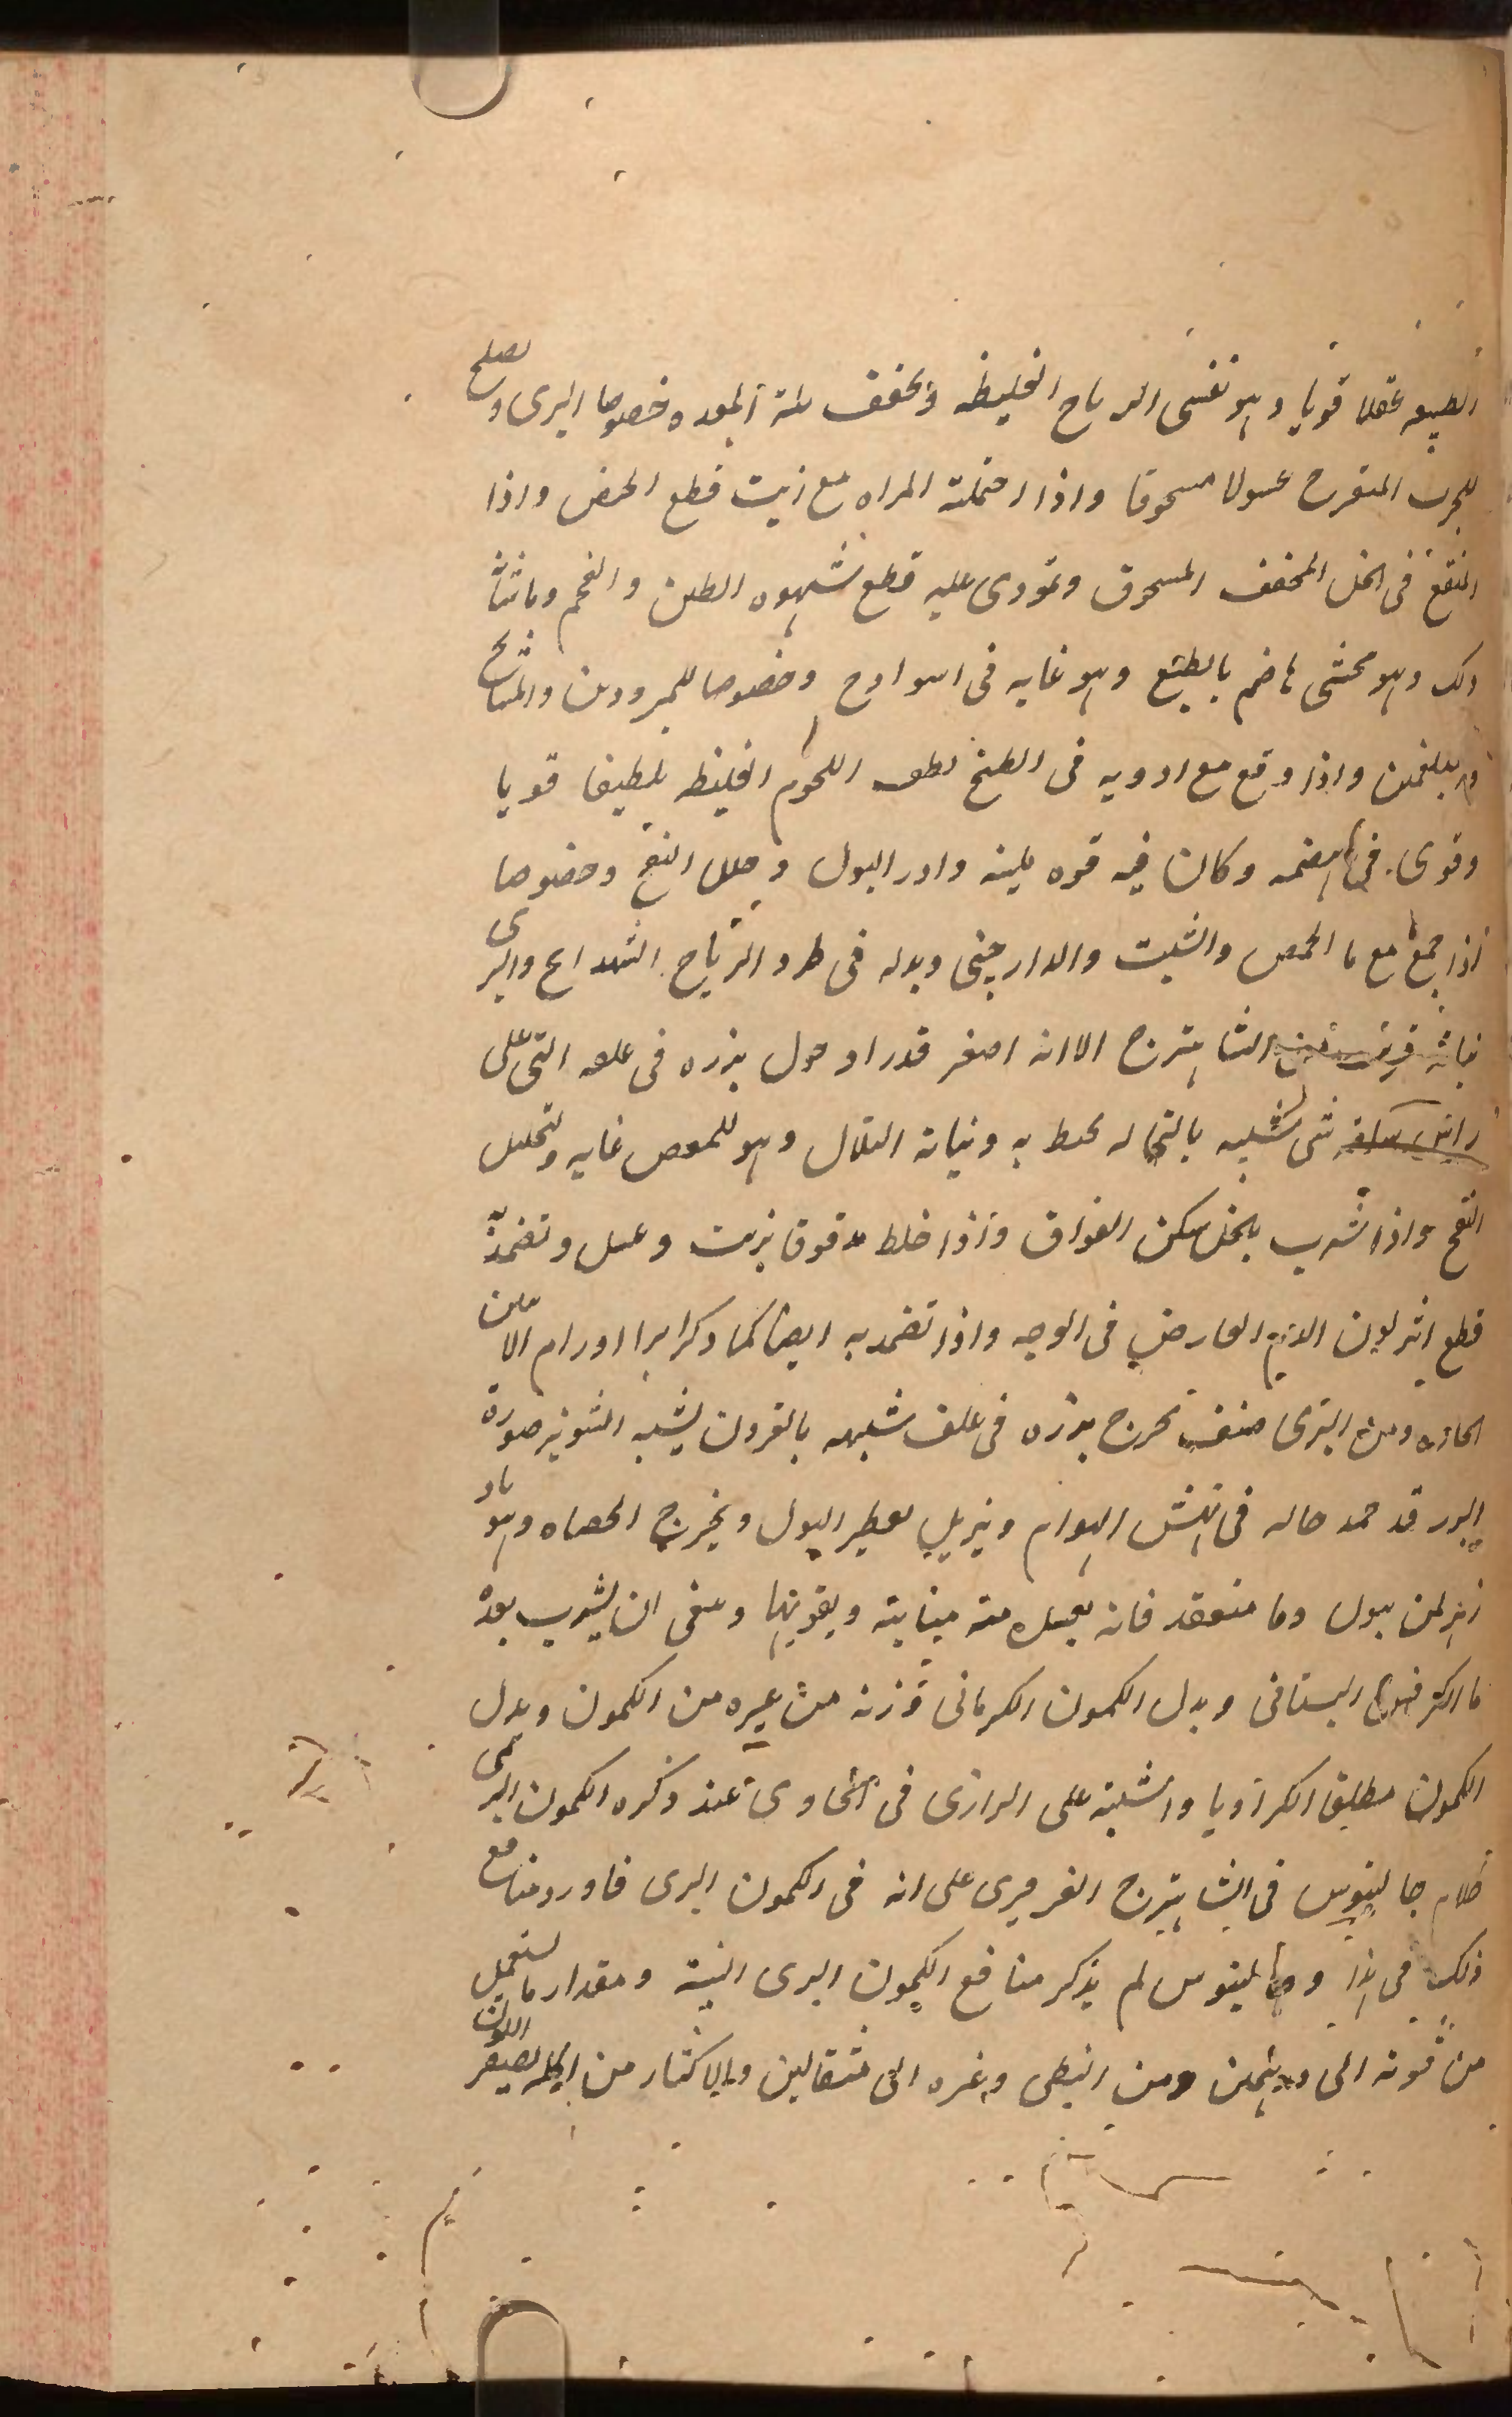 الطبيعه عقلا قويا وهو نفسى الرياح الغليظه ويجفف بلة المعده خصوصا البرى ويصلح
للجرب المتقرح غسولا مسحوقا واذا احتملته المراه مع زيت قطع الحيض واذا
انتقع فى الخل المجفف المسحوق وتمودى عليه قطع شهوه الطين والفحم وما شاء
ذلك وهو محشى هاضم بالطبع وهو غايه فى وخصوصا للمبرودين والمشايخ
والبلغمين واذا وقع مع ادويه فى الطبخ لطف اللحوم الغليظه تلطيفا قويا
وقوى فى الهضمه وكان فيه قوه ملينه وادر البول وحلل النفخ وخصوصا
اذا جمع مع ما الحمص والشبت والدارچينى وبدله فى طرد الرياح والبرى
نباته قريب من الشاهترج الا انه اصغر قدرا وحول بزره فى التى على
راس ساقه شى شبيه بالنخاله محيط به ونباته التلال وهو للمغص غايه وتحليل
النفخ واذا شرب بالخل سكن الفواق واذا خلط مدقوقا بزيت وعسل وتضمد
قطع اثر لون الدم العارض فى الوجه واذا تضمد به ايضا كما ذكر ابرا اورام الانثيين
الحاره ومن البرى صنف يخرج بزره فى غلف شبيهه بالقرون يشبه الشونيز صورة
البزر قد حمد حاله فى نهش الهوام ويزيل تقطير البول ويخرج الحصاه وهو
لمن يبول دما منعقد فانه ويقويها وينبغى ان يشرب بعده
ما الكرفس البستانى وبدل الكمون الكرمانى وزنه من غيره من الكمون وبدل
الكمون مطلق الكراويا واشتبه على الرازى فى الحاوى عند ذكره الكمون البرى
كلام جالينوس فى الشاهترج على انه فى الكمون البرى فاورد منافع
ذلك فى هذا وجالينوس لم يذكر منافع الكمون البرى البته ومقدار ما يستعمل
من قوته الى درهمين ومن النبطى وغيره الى مثقالين والاكثار من اكله يصفر اللون